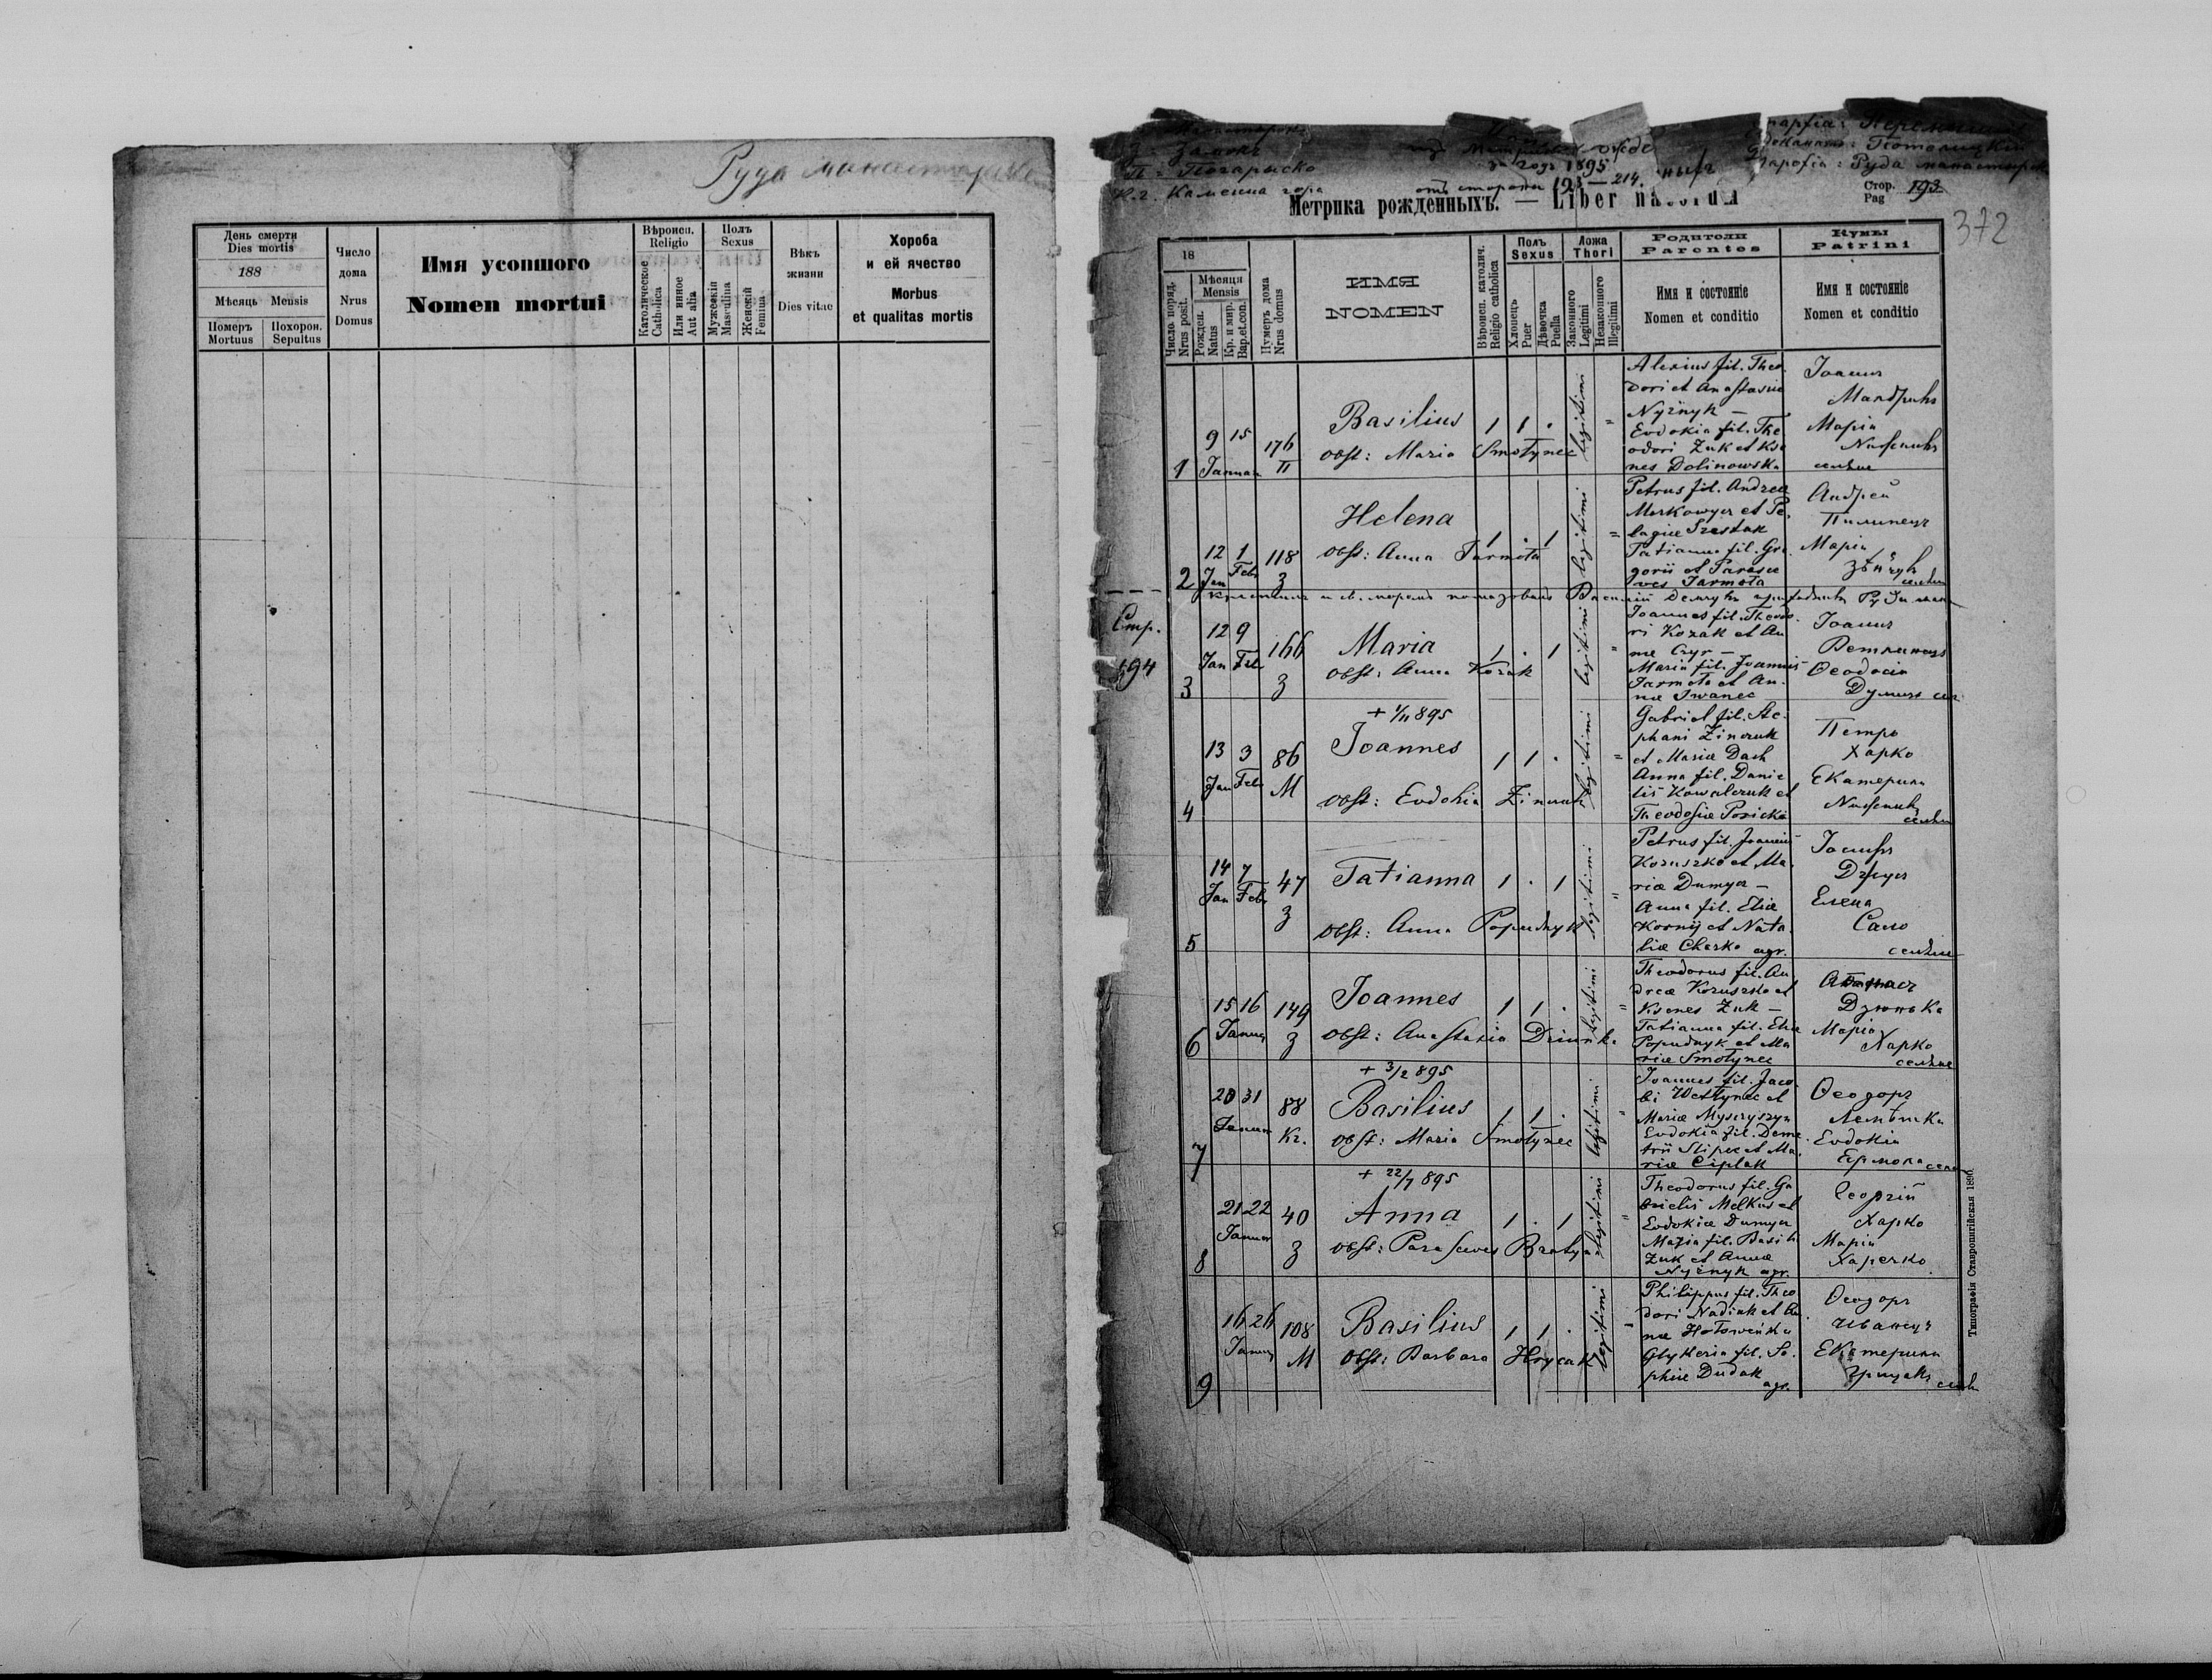 Руда манастирска
День смерти
Dies mortis
188
Мѣсяць Mensis
Померъ
Mortuus
Похорон.
Sepultus
Число
дома
Nrus
Domus
Имя усопшого
Nomen mortui
Вѣроисп.
Religio
Католическое
Catholica
Или инное
Aut alia
Полъ
Sexus
Мужескій
Masculina
Женскій
Femina
Вѣкъ
жизни
Dies vitae
Хороба
и ей ячество
Morbus
et qualitas mortis
З = Замокъ
П = Погарыско
К.г. Каменна гора
за годъ 1895
отъ стороны 193 — 214.
Парофіа: Руда манастирска
Стор.
Pag 193
372
Метрика рожденныхъ. — Liber natorum
18
Число поряд.
Nrus posit.
Мѣсяця
Mensis
Рожден.
Natus
Кр. и мир.
Bap. et con.
Нумеръ дома
Nrus domus
ИМЯ
NOMEN
Вѣроисп. католич.
Religio catholica
Полъ
Sexus
Хлопецъ
Puer
Дѣвочка
Puella
Ложа
Thori
Законного
Legitimi
Незаконного
Illegitimi
Родители
Parentes
Имя и состояніе
Nomen et conditio
Кумы
Patrini
Имя и состояніе
Nomen et conditio
1
9 15
Januar
176
П
Basilius 1 1 .
obst: Maria Smotynec
legitimi
Alexius fil. Theo
dori et Anastasiae
Nyżnyk —
Evdokia fil. The
odori Żuk et Kse
nes Dolinowska
Іоаннъ
Мандрикъ
Марія
2
12 1
Jan Febr
118
З
Helena 1 . 1
obst: Anna Jarmota
legitimi
Petrus fil. Andreae
Merkowycz et Pe
lagiae Szestak
Tatianna fil. Gre
gorii et Parasce
ves Jarmota
Андрей
Пилипецъ
Марія
Стр.
194
3
12 9
Jan Feb
166
З
Maria 1 . 1
obst: Anna Kozak
legitimi
Joannes fil. Theodo
ri Kozak et An
nae Czyr —
Maria fil. Joannis
Jarmota et An
nae Iwanec
Іоаннъ
Ѳеодосія
4
13 3
Jan Feb
86
М
+ 1/11 895
Joannes 1 1 .
obst: Evdokia Zinczuk
legitimi
Gabriel fil. Ste
phani Zinczuk
et Mariae Dach
Anna fil. Danie
lis Kowalczuk et
Theodosiae Posicka
Петро
Харко
Екатерина
5
14 7
Jan Feb
47
З
Tatianna 1 . 1
obst: Anna Popudnyk
legitimi
Petrus fil. Joannis
Kozuszko et Ma
riae Dumycz —
Anna fil. Eliae
Kornij et Nata
liae Charko agr.
Іосифъ
Елена
Сало
6
15 16
Januar
149
З
Joannes 1 1 .
obst: Anastasia Dziuńka
legitimi
Theodorus fil. An
dreae Kozuszko et
Ksenes Żuk —
Tatianna fil. Eliae
Popudnyk et Ma
riae Smotynec
Дзюнька
Марія
Харко
7
20 31
Januar
88
Кг.
+ 3/2 895
Basilius 1 1 .
obst: Maria Smotynec
legitimi
Joannes fil. Jaco
bi Westynec et
Mariae Myszczyszyn
Evdokia fil. Deme
trii Slipec et Ma
riae Ciplak
Ѳеодоръ
Евдокія
8
21 22
Januar
40
З
+ 22/7 895
Anna 1 . 1
obst: Parasceves Bratycz
legitimi
Theodorus fil. Ga
brielis Melkus et
Evdokiae Dumycz
Maria fil. Basilii
Żuk et Annae
Nyżnyk agr.
Георгій
Харко
Марія
Харечко
9
16 26
Januar
108
М
Basilius 1 1 .
obst: Barbara Hrycak
legitimi
Philippus fil. Theo
dori Nadiuk et An
nae Hotoweńka
Glykeria fil. So
phiae Dudak
agr.
Ѳеодоръ
Иванецъ
Екатерина
Грицакъ
Типографія Ставропигійская 1890.